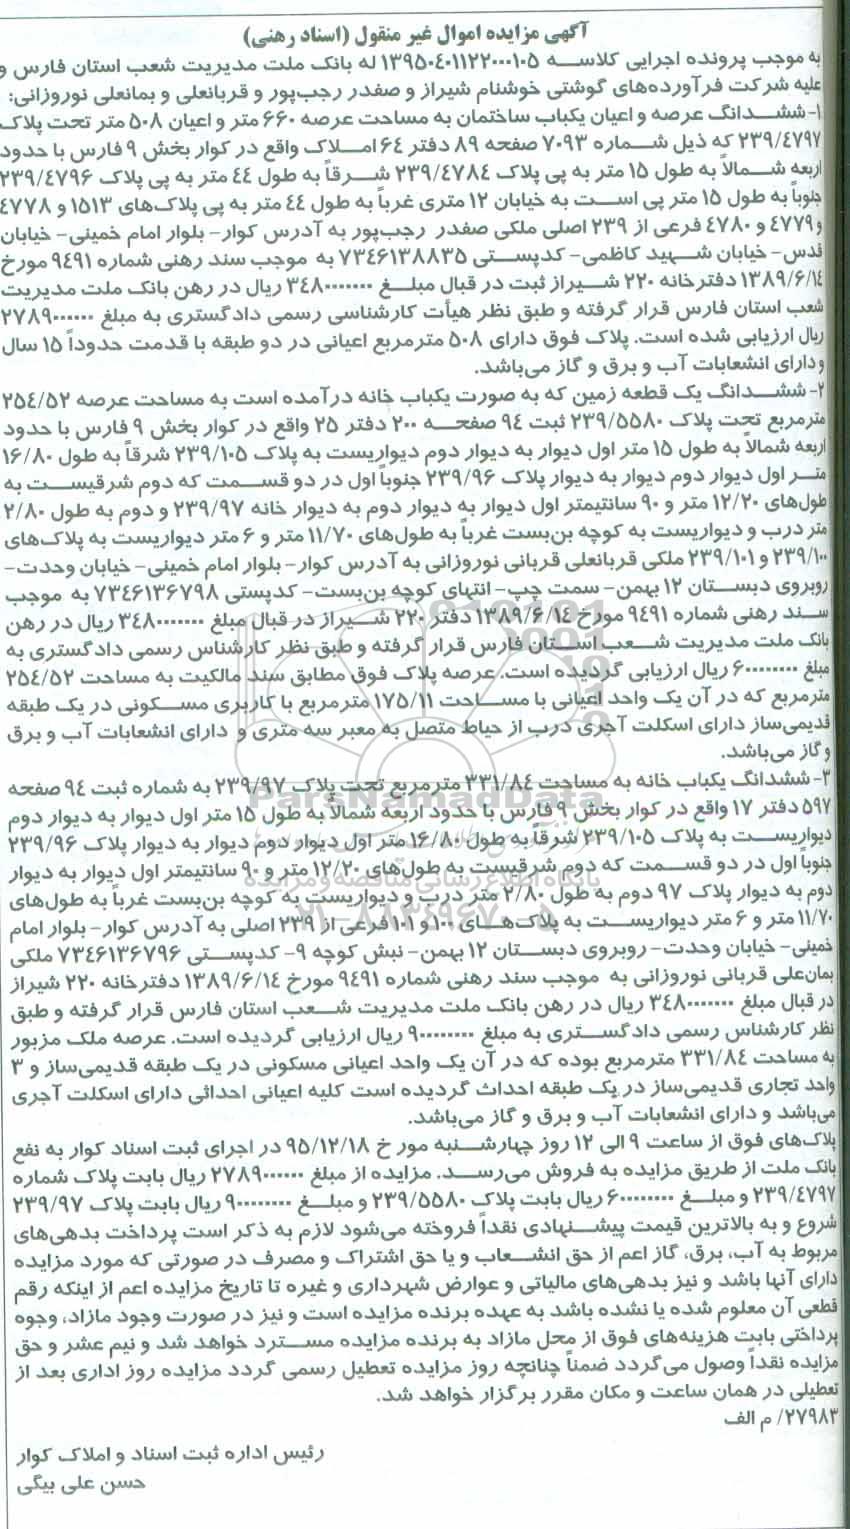 آگهی مزایده اموال غیر منقول (اسناد رهنی)
به موجب پرونده اجرایی کلاسه ۱۳۹۵۰۴۰۱۱۲۲۰۰۰۱۰۵ له بانک ملت مدیریت شعب استان فارس و
علیه شرکت فرآورده‌های گوشتی خوشنام شیراز و صفدر رجب‌پور و قربانعلی و بمانعلی نوروزانی:
۱- ششدانگ عرصه و اعیان یکباب ساختمان به مساحت عرصه ۶۶۰ متر و اعیان ۵۰۸ متر تحت پلاک
۲۳۹/۴۷۹۷ که ذیل شماره ۷۰۹۳ صفحه ۸۹ دفتر ۶۴ املاک واقع در کوار بخش ۹ فارس با حدود
اربعه شمالاً به طول ۱۵ متر به پی پلاک ۲۳۹/۴۷۸۴ شرقاً به طول ۴۴ متر به پی پلاک ۲۳۹/۴۷۹۶
جنوباً به طول ۱۵ متر پی است به خیابان ۱۲ متری غرباً به طول ۴۴ متر به پی پلاک‌های ۱۵۱۳ و ۴۷۷۸
و ۴۷۷۹ و ۴۷۸۰ فرعی از ۲۳۹ اصلی ملکی صفدر رجب‌پور به آدرس کوار- بلوار امام خمینی- خیابان
قدس- خیابان شهید کاظمی- کدپستی ۷۳۴۶۱۳۸۸۳۵ به موجب سند رهنی شماره ۹۴۹۱ مورخ
۱۳۸۹/۶/۱۴ دفترخانه ۲۲۰ شیراز ثبت در قبال مبلغ ۳۴۸۰۰۰۰۰۰۰ ریال در رهن بانک ملت مدیریت
شعب استان فارس قرار گرفته و طبق نظر هیأت کارشناسی رسمی دادگستری به مبلغ ۲۷۸۹۰۰۰۰۰۰
ریال ارزیابی شده است. پلاک فوق دارای ۵۰۸ مترمربع اعیانی در دو طبقه با قدمت حدوداً ۱۵ سال
و دارای انشعابات آب و برق و گاز می‌باشد.
۲- ششدانگ یک قطعه زمین که به صورت یکباب خانه درآمده است به مساحت عرصه ۲۵۴/۵۲
مترمربع تحت پلاک ۲۳۹/۵۵۸۰ ثبت ۹۴ صفحه ۲۰۰ دفتر ۲۵ واقع در کوار بخش ۹ فارس با حدود
اربعه شمالاً به طول ۱۵ متر اول دیوار به دیوار دوم دیواریست به پلاک ۲۳۹/۱۰۵ شرقاً به طول ۱۶/۸۰
متر اول دیوار دوم دیوار به دیوار پلاک ۲۳۹/۹۶ جنوباً اول در دو قسمت که دوم شرقیست به
طول‌های ۱۲/۲۰ متر و ۹۰ سانتیمتر اول دیوار به دیوار دوم به دیوار خانه ۲۳۹/۹۷ و دوم به طول ۲/۸۰
متر درب و دیواریست به کوچه بن‌بست غرباً به طول‌های ۱۱/۷۰ متر و ۶ متر دیواریست به پلاک‌های
۲۳۹/۱۰۰ و ۲۳۹/۱۰۱ ملکی قربانعلی قربانی نوروزانی به آدرس کوار- بلوار امام خمینی- خیابان وحدت-
روبروی دبستان ۱۲ بهمن- سمت چپ- انتهای کوچه بن‌بست- کدپستی ۷۳۴۶۱۳۶۷۹۸ به موجب
سند رهنی شماره ۹۴۹۱ مورخ ۱۳۸۹/۶/۱۴ دفتر ۲۲۰ شیراز در قبال مبلغ ۳۴۸۰۰۰۰۰۰۰ ریال در رهن
بانک ملت مدیریت شعب استان فارس قرار گرفته و طبق نظر کارشناس رسمی دادگستری به
مبلغ ۶۰۰۰۰۰۰۰۰ ریال ارزیابی گردیده است. عرصه پلاک فوق مطابق سند مالکیت به مساحت ۲۵۴/۵۲
مترمربع که در آن یک واحد اعیانی با مساحت ۱۷۵/۱۱ مترمربع با کاربری مسکونی در یک طبقه
قدیمی‌ساز دارای اسکلت آجری درب از حیاط متصل به معبر سه متری و دارای انشعابات آب و برق
و گاز می‌باشد.
۳- ششدانگ یکباب خانه به مساحت ۳۳۱/۸۴ مترمربع تحت پلاک ۲۳۹/۹۷ به شماره ثبت ۹۴ صفحه
۵۹۷ دفتر ۱۷ واقع در کوار بخش ۹ فارس با حدود اربعه شمالاً به طول ۱۵ متر اول دیوار به دیوار دوم
دیواریست به پلاک ۲۳۹/۱۰۵ شرقاً به طول ۱۶/۸۰ متر اول دیوار دوم دیوار به دیوار پلاک ۲۳۹/۹۶
جنوباً اول در دو قسمت که دوم شرقیست به طول‌های ۱۲/۲۰ متر و ۹۰ سانتیمتر اول دیوار به دیوار
دوم به دیوار پلاک ۹۷ دوم به طول ۲/۸۰ متر درب و دیواریست به کوچه بن‌بست غرباً به طول‌های
۱۱/۷۰ متر و ۶ متر دیواریست به پلاک‌های ۱۰۰ و ۱۰۱ فرعی از ۲۳۹ اصلی به آدرس کوار- بلوار امام
خمینی- خیابان وحدت- روبروی دبستان ۱۲ بهمن- نبش کوچه ۹- کدپستی ۷۳۴۶۱۳۶۷۹۶ ملکی
بمان‌علی قربانی نوروزانی به موجب سند رهنی شماره ۹۴۹۱ مورخ ۱۳۸۹/۶/۱۴ دفترخانه ۲۲۰ شیراز
در قبال مبلغ ۳۴۸۰۰۰۰۰۰۰ ریال در رهن بانک ملت مدیریت شعب استان فارس قرار گرفته و طبق
نظر کارشناس رسمی دادگستری به مبلغ ۹۰۰۰۰۰۰۰۰ ریال ارزیابی گردیده است. عرصه ملک مزبور
به مساحت ۳۳۱/۸۴ مترمربع بوده که در آن یک واحد اعیانی مسکونی در یک طبقه قدیمی‌ساز و ۳
واحد تجاری قدیمی‌ساز در یک طبقه احداث گردیده است کلیه اعیانی احداثی دارای اسکلت آجری
می‌باشد و دارای انشعابات آب و برق و گاز می‌باشد.
پلاک‌های فوق از ساعت ۹ الی ۱۲ روز چهارشنبه مورخ ۹۵/۱۲/۱۸ در اجرای ثبت اسناد کوار به نفع
بانک ملت از طریق مزایده به فروش می‌رسد. مزایده از مبلغ ۲۷۸۹۰۰۰۰۰۰ ریال بابت پلاک شماره
۲۳۹/۴۷۹۷ و مبلغ ۶۰۰۰۰۰۰۰۰ ریال بابت پلاک ۲۳۹/۵۵۸۰ و مبلغ ۹۰۰۰۰۰۰۰۰ ریال بابت پلاک ۲۳۹/۹۷
شروع و به بالاترین قیمت پیشنهادی نقداً فروخته می‌شود لازم به ذکر است پرداخت بدهی‌های
مربوط به آب، برق، گاز اعم از حق انشعاب و یا حق اشتراک و مصرف در صورتی که مورد مزایده
دارای آنها باشد و نیز بدهی‌های مالیاتی و عوارض شهرداری و غیره تا تاریخ مزایده اعم از اینکه رقم
قطعی آن معلوم شده یا نشده باشد به عهده برنده مزایده است و نیز در صورت وجود مازاد، وجوه
پرداختی بابت هزینه‌های فوق از محل مازاد به برنده مزایده مسترد خواهد شد و نیم عشر و حق
مزایده نقداً وصول می‌گردد ضمناً چنانچه روز مزایده تعطیل رسمی گردد مزایده روز اداری بعد از
تعطیلی در همان ساعت و مکان مقرر برگزار خواهد شد.
۲۷۹۸۳/ م الف
رئیس اداره ثبت اسناد و املاک کوار
حسن علی بیگی
ParsNamadData
پایگاه اطلاع رسانی مناقصه و مزایده
۰۲۱-۸۸۳۴۹۶۷۰-۵